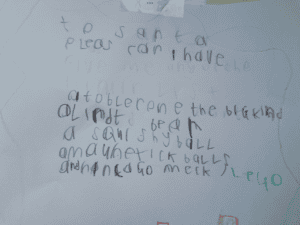 to santa
pleas can i have
a toblerone the big kind
a lindt bear
a squishy ball
a magnetick balls
LEGO